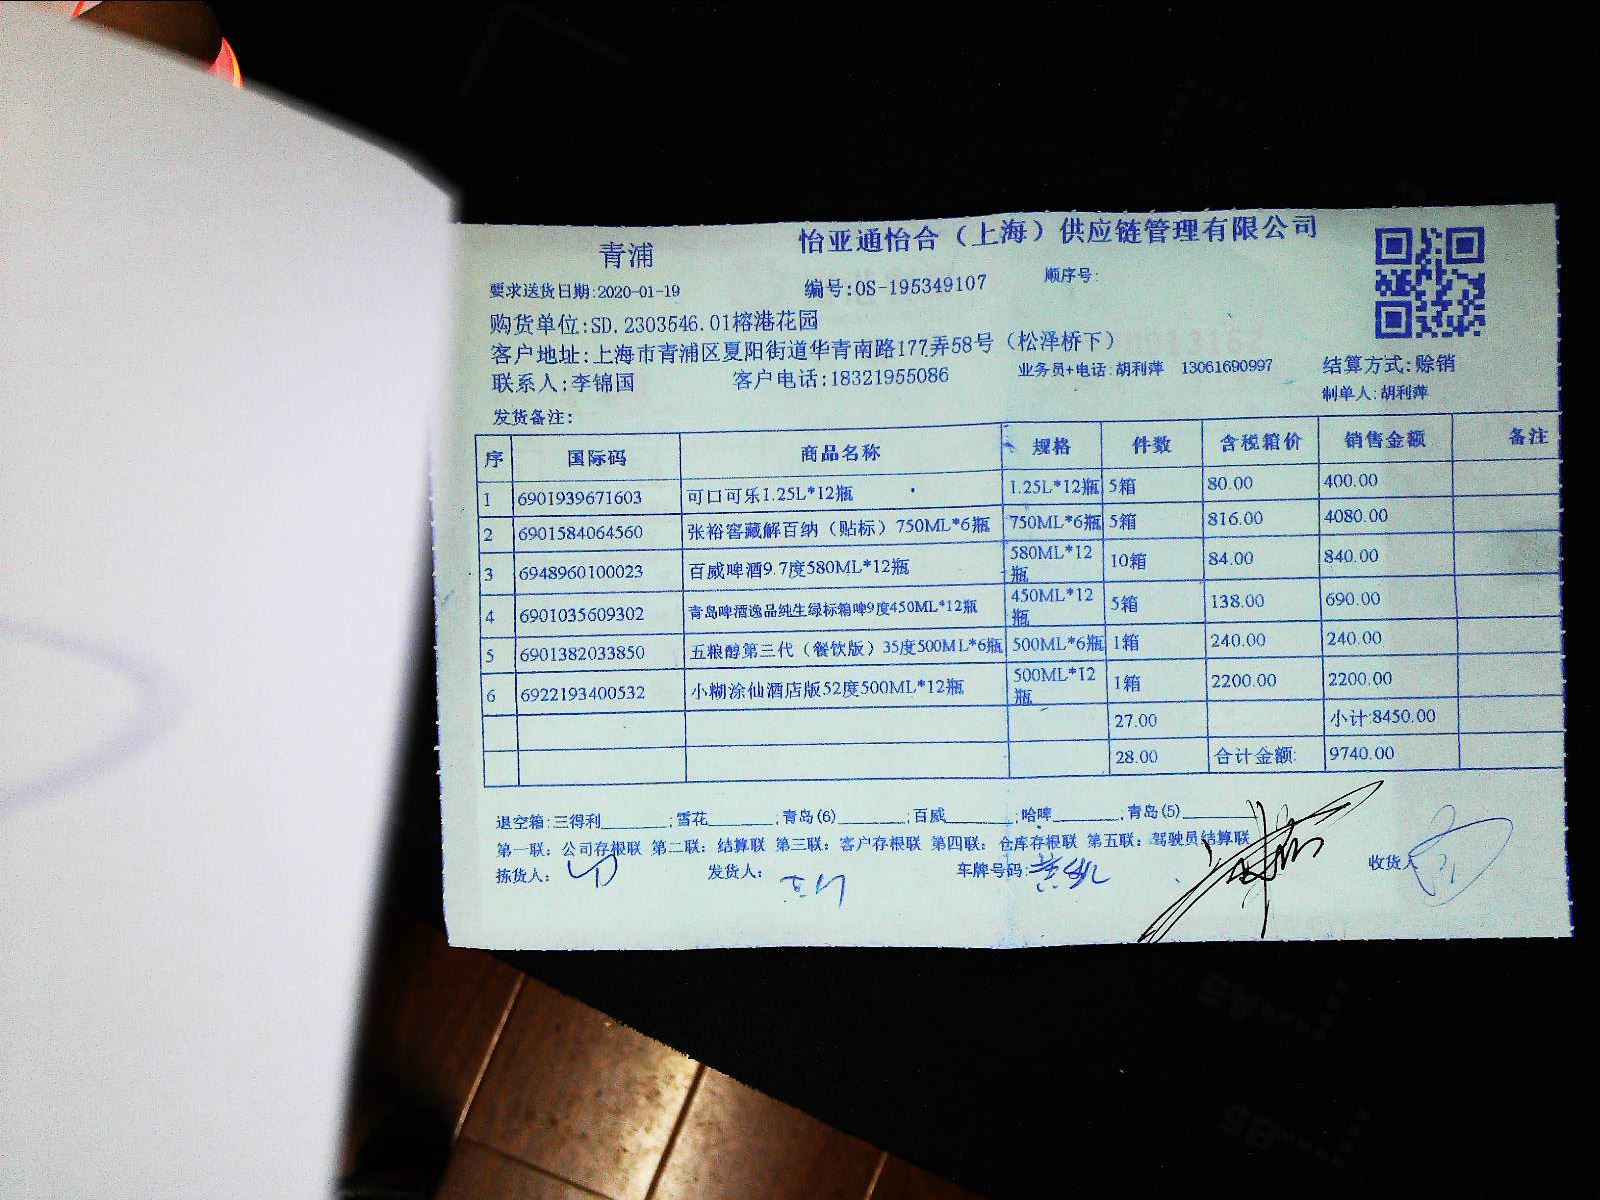 青浦 怡亚通怡合（上海）供应链管理有限公司
要求送货日期:2020-01-19 编号:OS-195349107 顺序号:
购货单位:SD.2303546.01榕港花园
客户地址:上海市青浦区夏阳街道华青南路177弄58号（松泽桥下）
联系人:李锦国 客户电话:18321955086 业务员+电话:胡利萍 13061690997 结算方式:赊销
制单人:胡利萍
发货备注:
序 国际码 商品名称 规格 件数 含税箱价 销售金额 备注
1 6901939671603 可口可乐1.25L*12瓶 1.25L*12瓶 5箱 80.00 400.00
2 6901584064560 张裕窖藏解百纳（贴标）750ML*6瓶 750ML*6瓶 5箱 816.00 4080.00
3 6948960100023 百威啤酒9.7度580ML*12瓶 580ML*12瓶 10箱 84.00 840.00
4 6901035609302 青岛啤酒逸品纯生绿标箱啤9度450ML*12瓶 450ML*12瓶 5箱 138.00 690.00
5 6901382033850 五粮醇第三代（餐饮版）35度500ML*6瓶 500ML*6瓶 1箱 240.00 240.00
6 6922193400532 小糊涂仙酒店版52度500ML*12瓶 500ML*12瓶 1箱 2200.00 2200.00
27.00 小计:8450.00
28.00 合计金额: 9740.00
退空箱:三得利_______;雪花_______;青岛(6)_______;百威_______;哈啤_______;青岛(5)_______
第一联：公司存根联 第二联：结算联 第三联：客户存根联 第四联：仓库存根联 第五联：驾驶员结算联
拣货人： 发货人： 车牌号码: 收货人